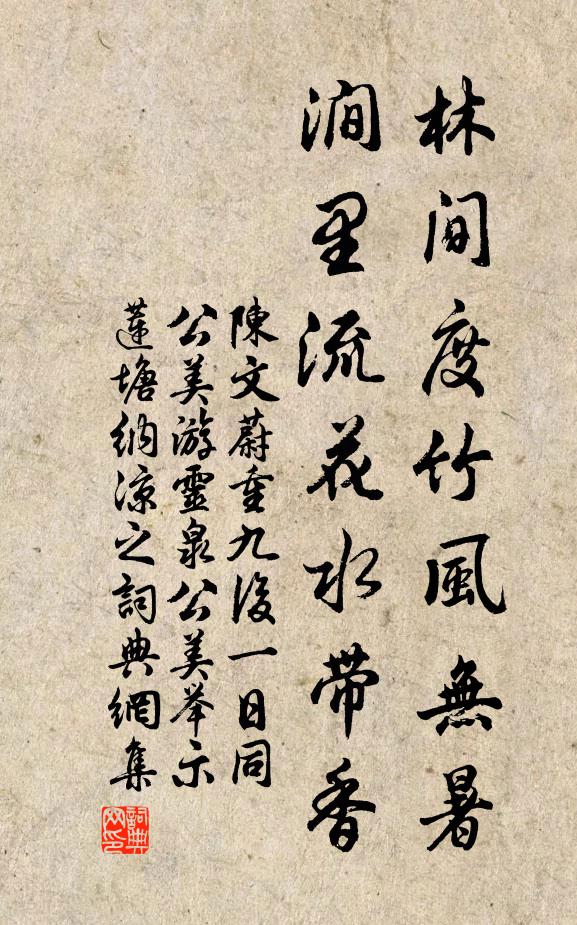 林間度竹風無暑
澗里流花水帶香
陳文蔚重九後一日同
公美游靈泉公美举示
蓮塘納凉之詞典網集
詞典
网印